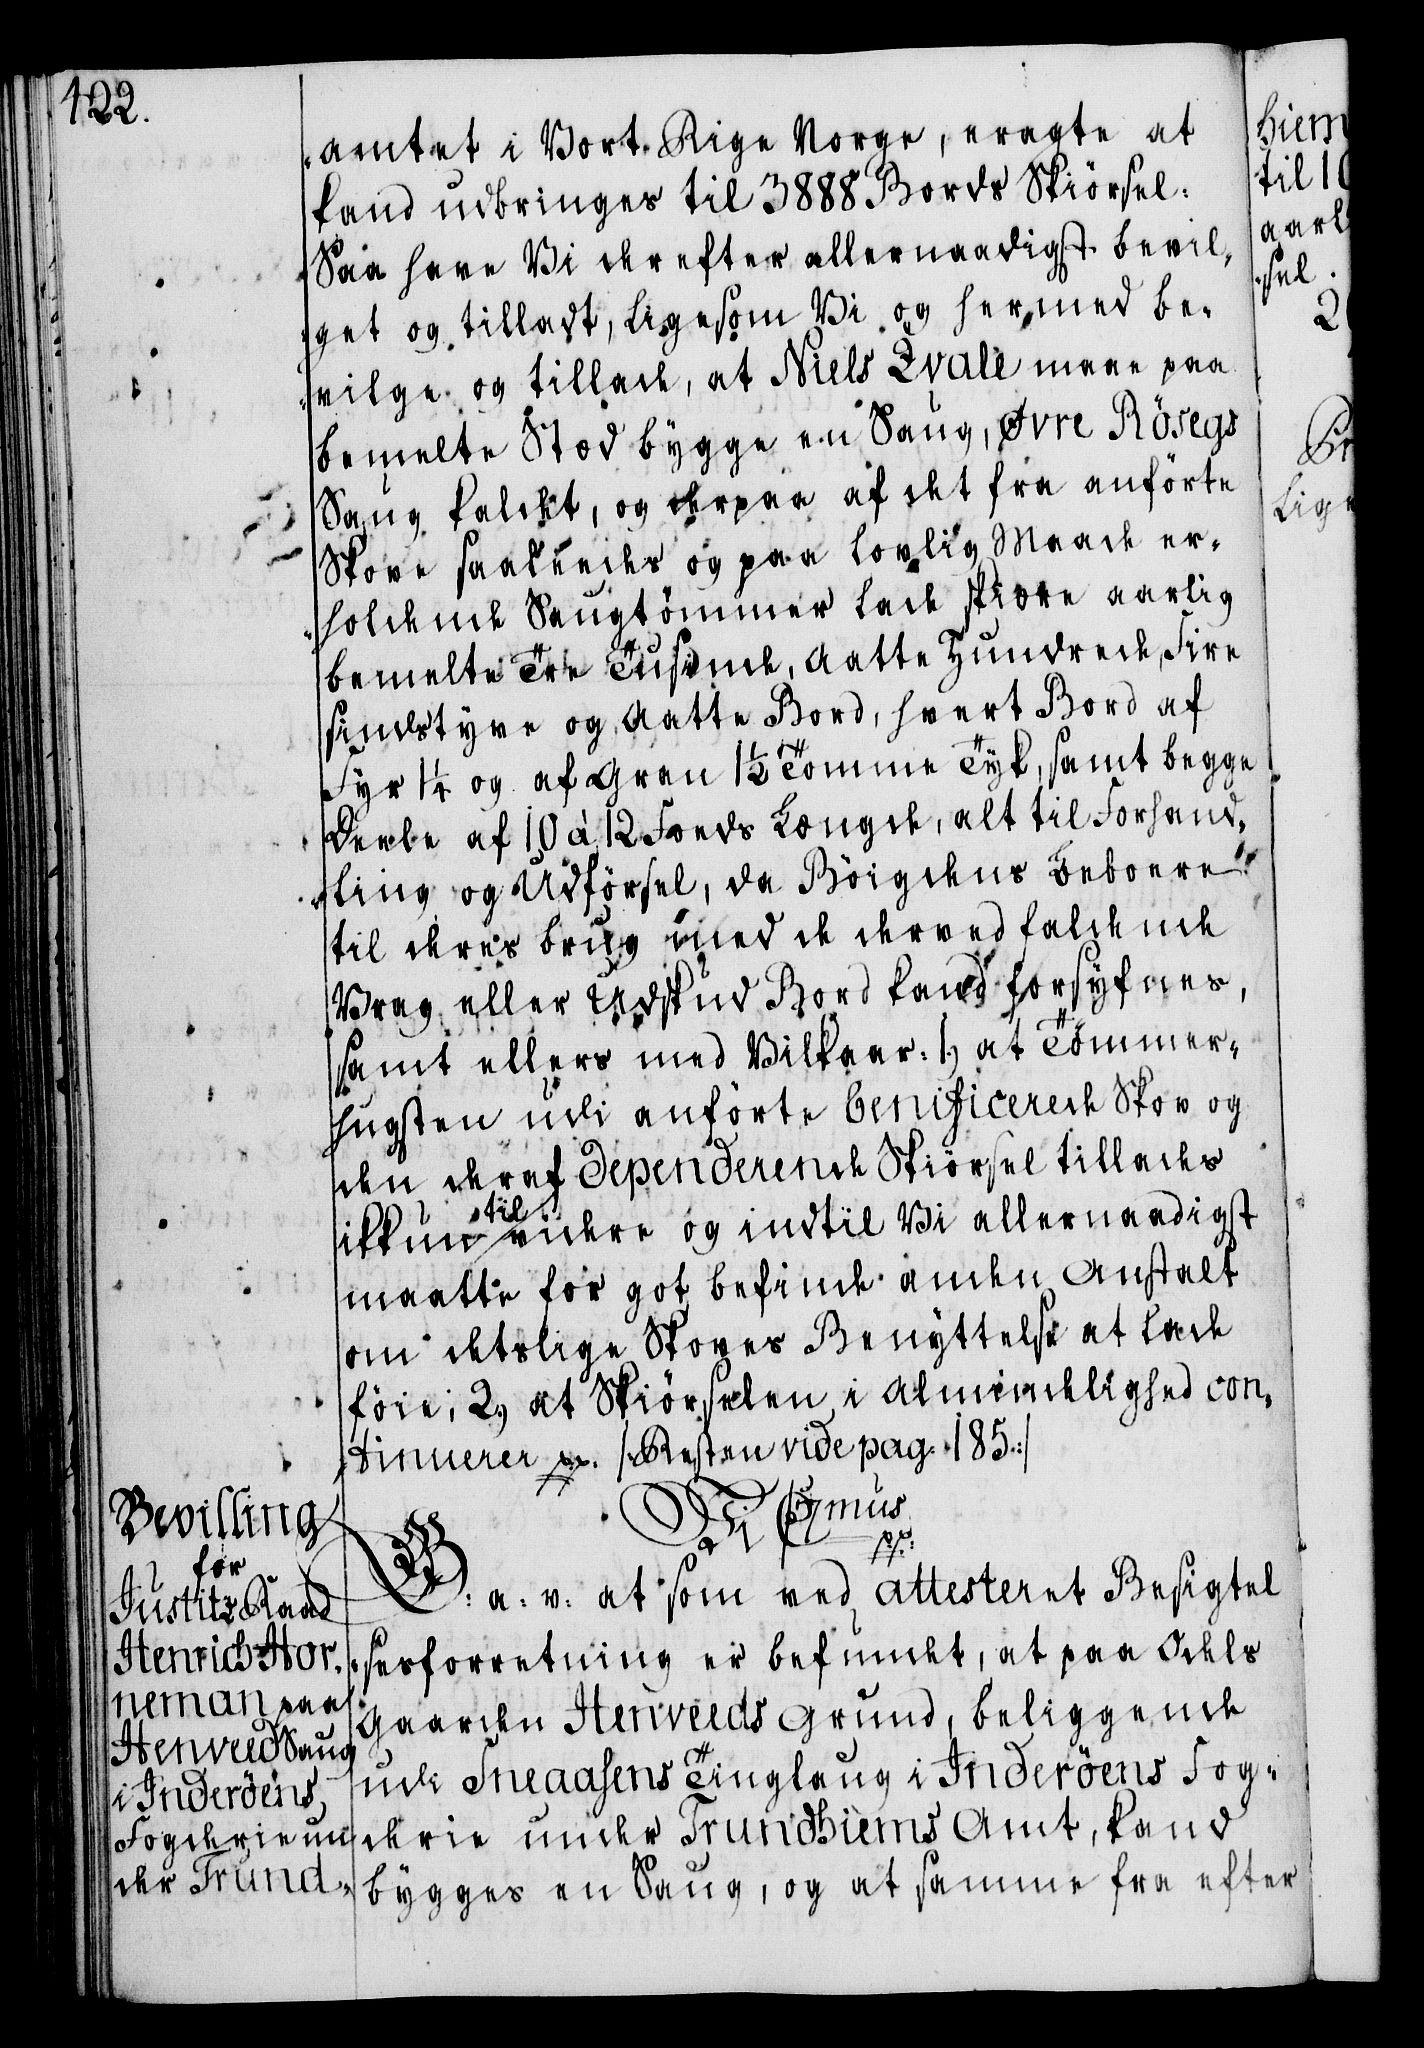 422.
amtet i Vort Rige Norge, eragte at
kand udbringes til 3888 Bords Skiörsel:
Saa have Vi derefter allernaadigst bevil-
get og tilladt, ligesom Vi og hermed be-
vilge og tillade, at Niels Qvale maae paa
bemelte Stæd bygge en Saug, Øvre Rösegs
Saug kaldet, og derpaa af det fra anförte
Skove saaledes og paa lovlig Maade er-
holdende Saugtömmer lade skiære aarlig
bemelte Tre Tusinde, Aatte Hundrede, Fire
sindstyve og Aatte Bord, hvert Bord af
Fyr 1¼ og af Gran 1½ Tomme Tyk, samt begge
Deele af 10 à 12 Foeds Længde, alt til Forhand-
ling og Udförsel, da Böigdens Beboere
til deres brug med de derved faldende
Vrag eller Udskud Bord kand forsyfnes,
samt ellers med Vilkaar: 1, at Tömmer-
hugsten udi anförte benificerede Skov og
den deraf dependerende Skiörsel tillades
ikkun til videre og indtil Vi allernaadigst
maatte for got befinde anden Anstalt
om detslige Skoves Benyttelse at lade
föie; 2, at Skiörselen i Almindelighed con-
tinuerer pp. /: Resten vide pag. 185. :/
Bevilling
for
Justitz Raad
Henrich Hor-
neman paa
Henveed Saug
i Inderöens
Fogderie un
der Trund-
Vi Chr: 7mus
pp:
G: a: v: at som ved attesteret Besigtel
sesforretning er befundet, at paa Odels
Gaarden Henveeds Grund, beliggende
udi Sneaasens Tinglaug i Inderöens Fog-
derie under Trundhiems Amt, kand
bygges en Saug, og at samme fra efter
hiem
til 10
aarl
sel.
2
lige